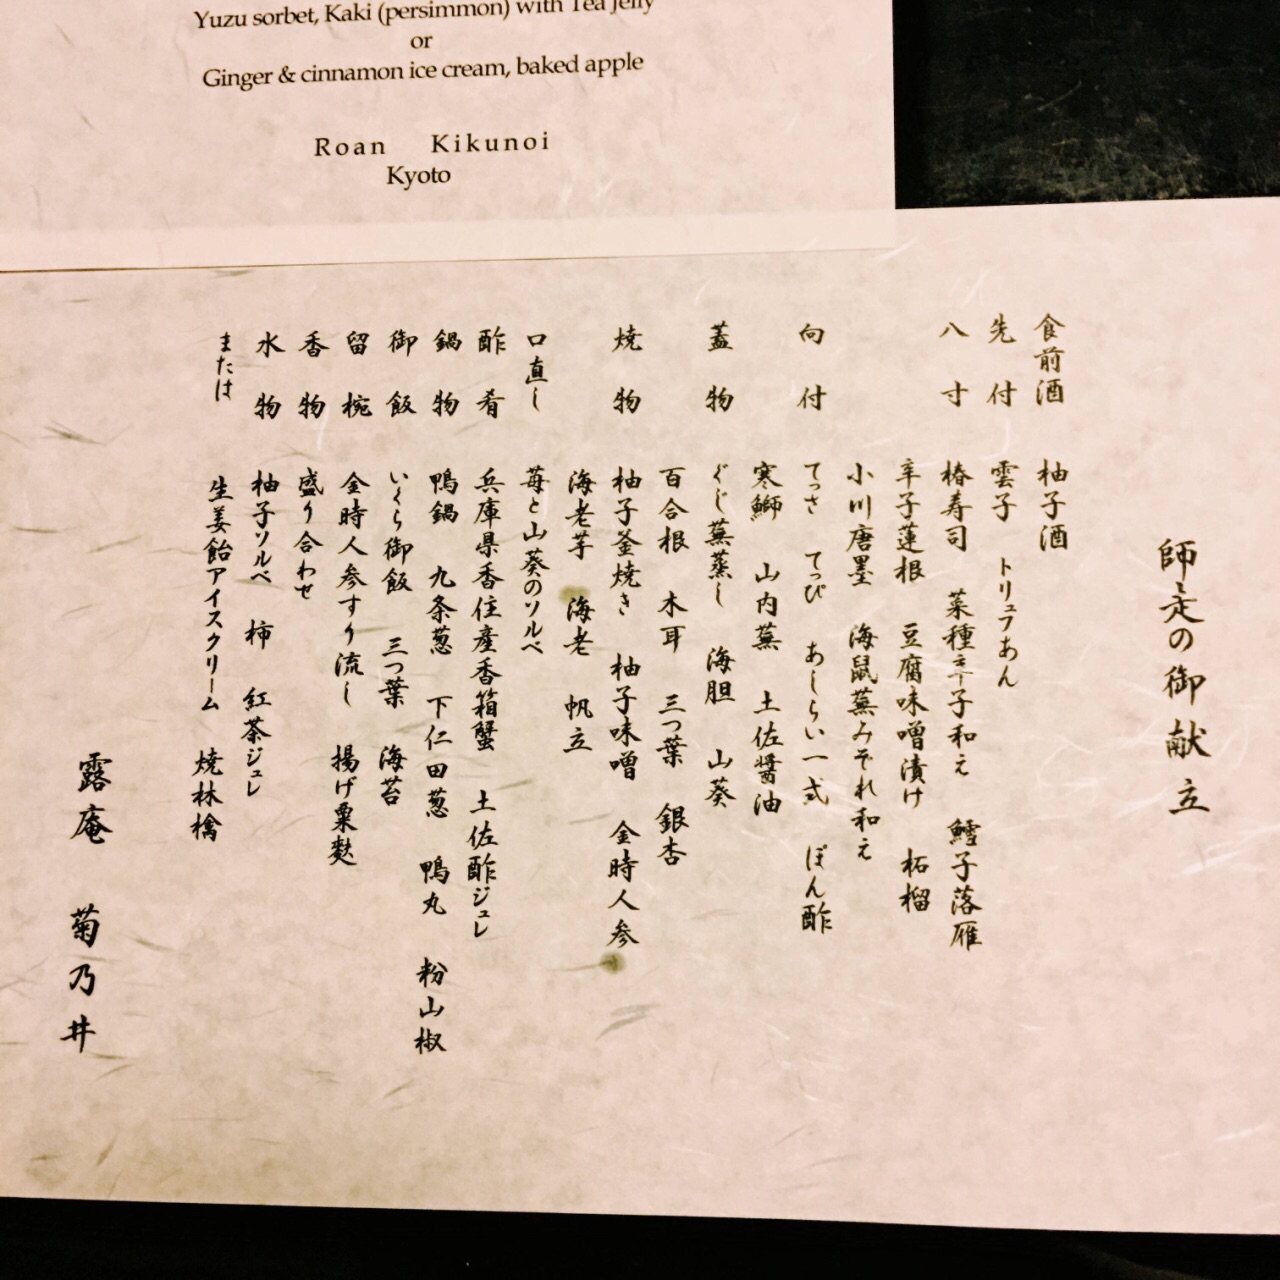 Yuzu sorbet, Kaki (persimmon) with Tea jelly
or
Ginger & cinnamon ice cream, baked apple
Roan Kikunoi
Kyoto
師走の御献立
食前酒 柚子酒
先付 雲子 トリュフあん
八寸 椿寿司 菜種辛子和え 鱈子落雁
辛子蓮根 豆腐味噌漬け 柘榴
小川唐墨 海鼠蕪みぞれ和え
向付 てっさ てっぴ あしらい一式 ぽん酢
寒鰤 山内蕪 土佐醤油
蓋物 ぐじ蕪蒸し 海胆 山葵
百合根 木耳 三つ葉 銀杏
焼物 柚子釜焼き 柚子味噌 金時人参
海老芋 海老 帆立
口直し 苺と山葵のソルベ
酢肴 兵庫県香住産香箱蟹 土佐酢ジュレ
鍋物 鴨鍋 九条葱 下仁田葱 鴨丸 粉山椒
御飯 いくら御飯 三つ葉 海苔
留椀 金時人参すり流し 揚げ粟麩
香物 盛り合わせ
水物 柚子ソルベ 柿 紅茶ジュレ
または 生姜飴アイスクリーム 焼林檎
露庵 菊乃井